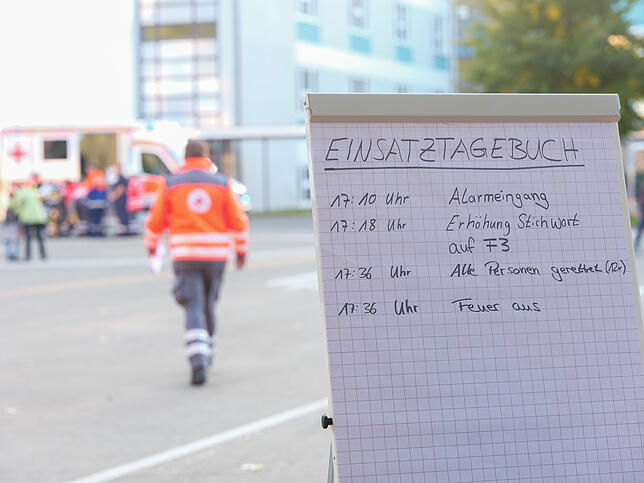 EINSATZTAGEBUCH
17:10 Uhr Alarmeingang
17:18 Uhr Erhöhung Stichwort
auf F3
17:36 Uhr Alle Personen gerettet (12x)
17:36 Uhr Feuer aus